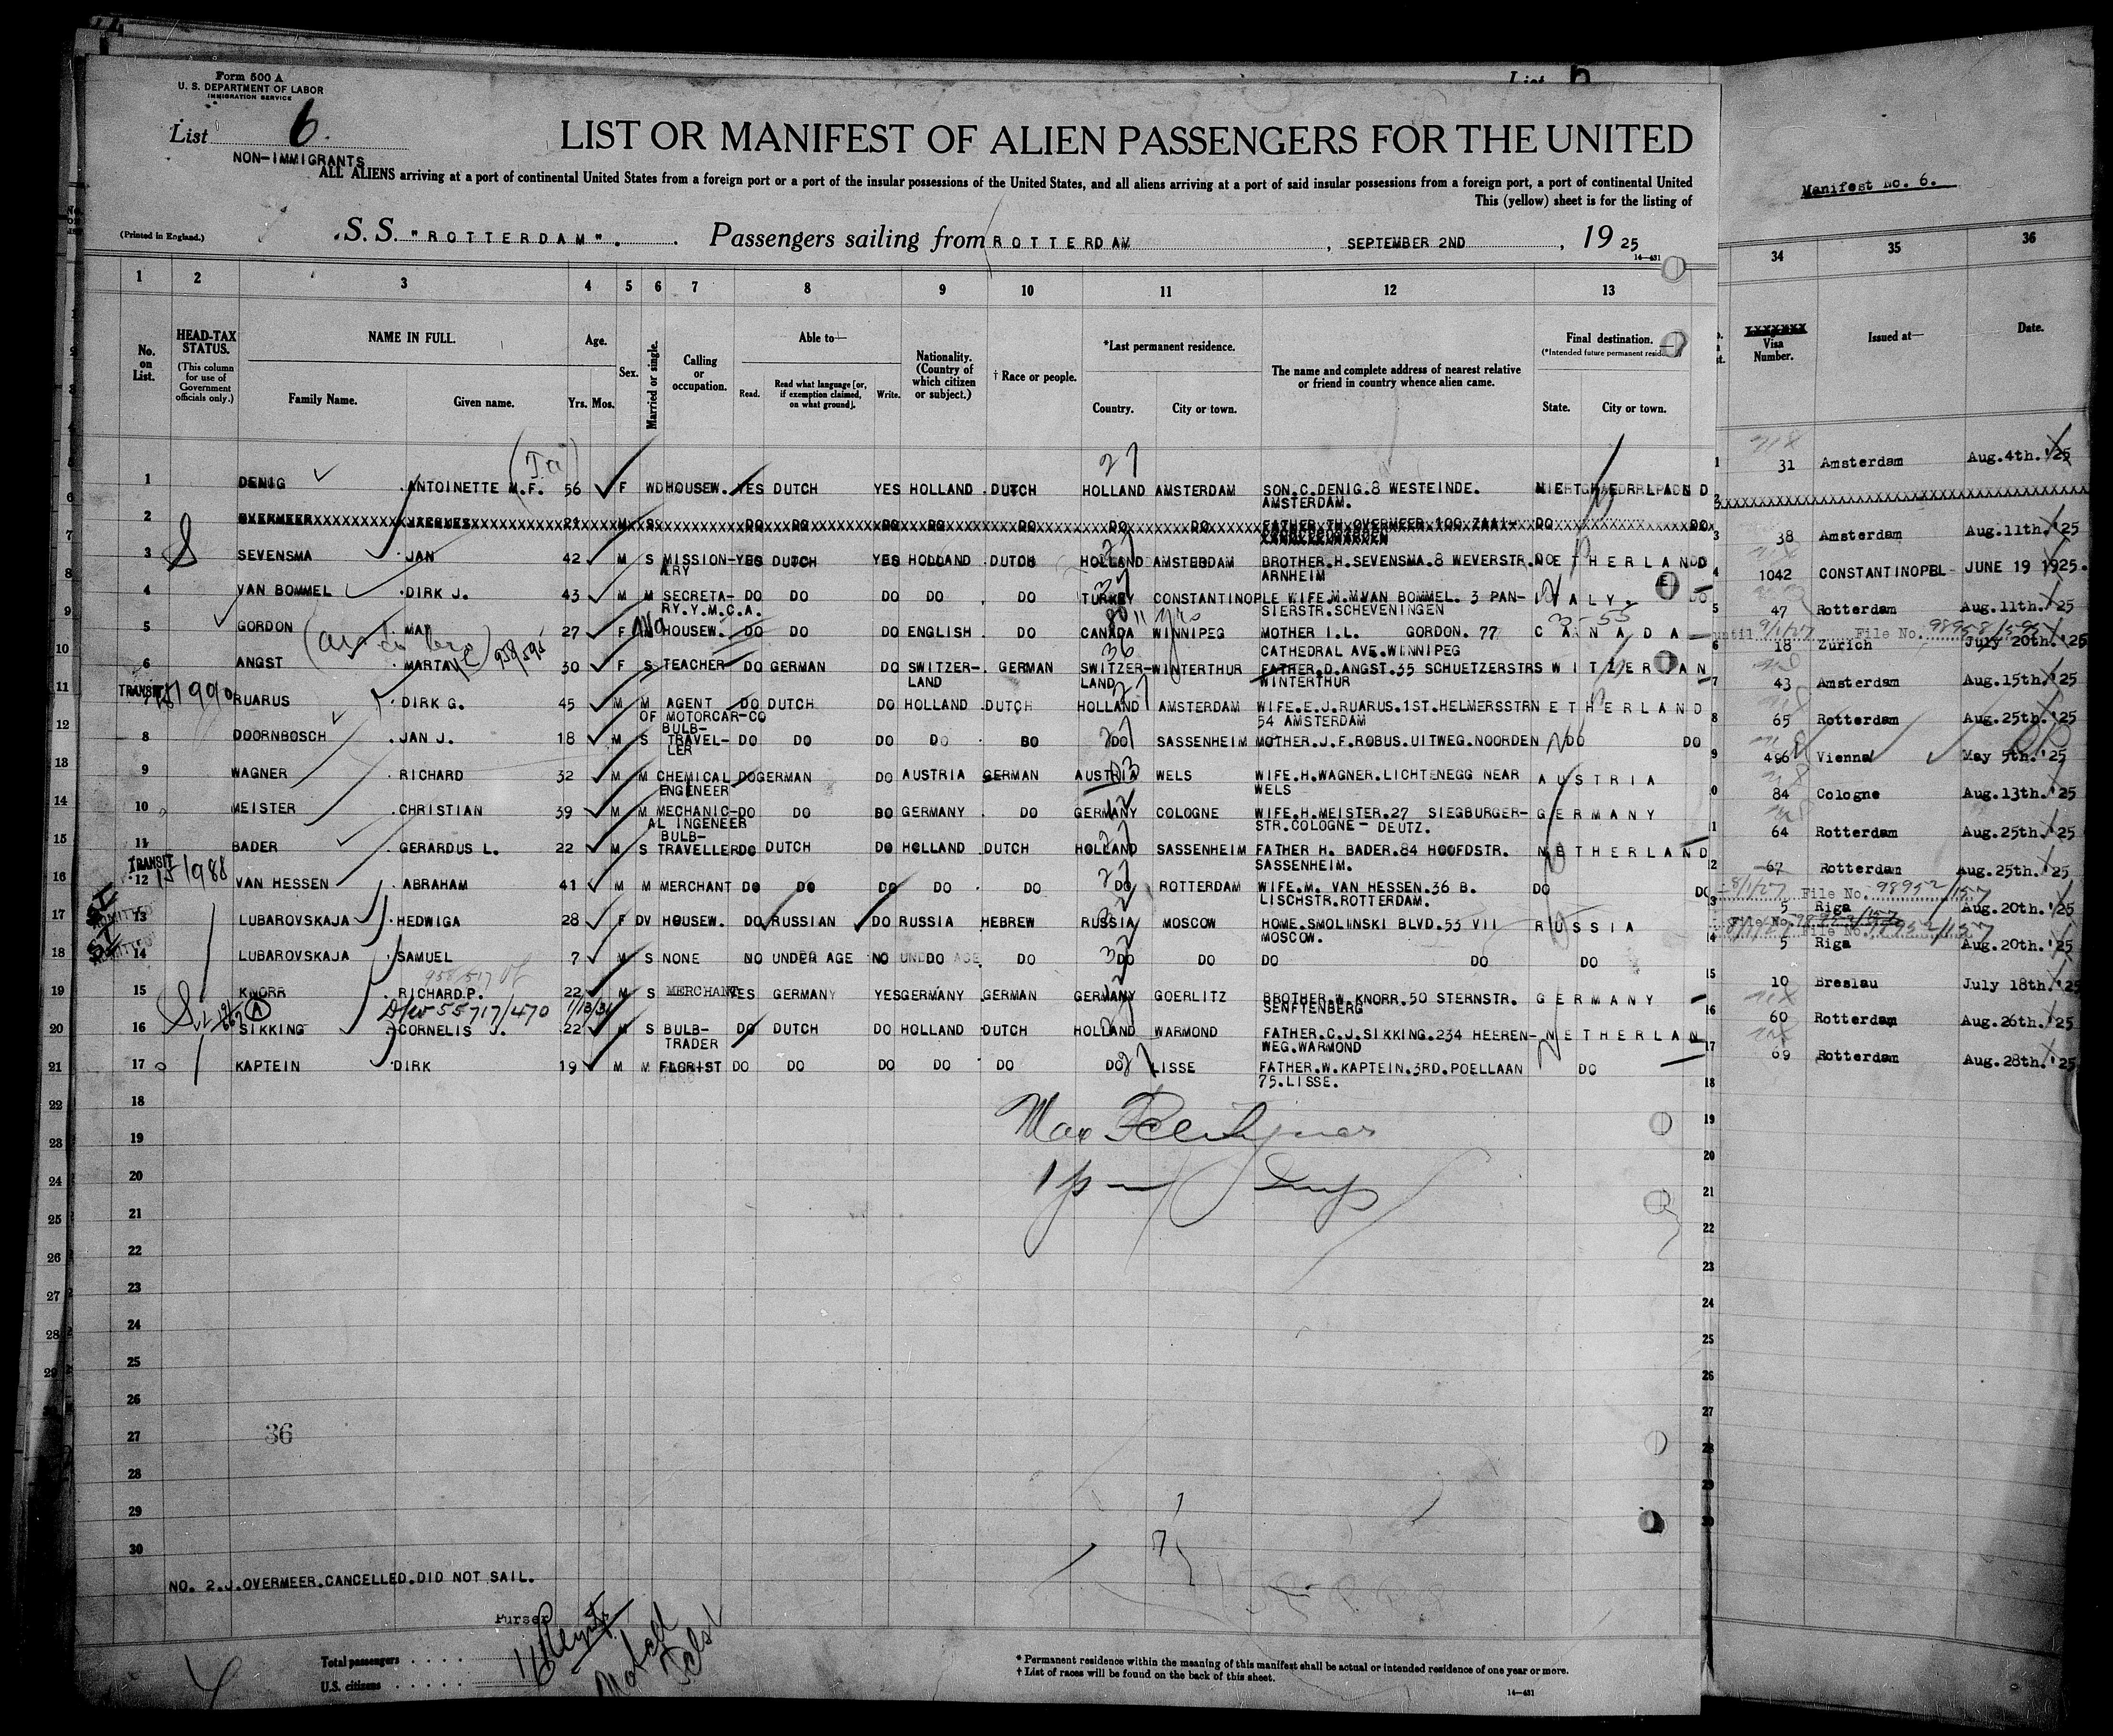 Form 500 A
U. S. DEPARTMENT OF LABOR
IMMIGRATION SERVICE
List 6.
NON-IMMIGRANTS
LIST OR MANIFEST OF ALIEN PASSENGERS FOR THE UNITED
ALL ALIENS arriving at a port of continental United States from a foreign port or a port of the insular possessions of the United States, and all aliens arriving at a port of said insular possessions from a foreign port, a port of continental United
This (yellow) sheet is for the listing of
Manifest No. 6.
(Printed in England.)
S. S. "ROTTERDAM". Passengers sailing from ROTTERDAM, SEPTEMBER 2ND, 1925
14—431
1 2 3 4 5 6 7 8 9 10 11 12 13 34 35 36
No. on List.
HEAD-TAX STATUS.
(This column for use of Government officials only.)
NAME IN FULL.
Family Name. Given name.
Age.
Yrs. Mos.
Sex.
Married or single.
Calling or occupation.
Able to—
Read. Read what language [or, if exemption claimed, on what ground]. Write.
Nationality. (Country of which citizen or subject.)
† Race or people.
*Last permanent residence.
Country. City or town.
The name and complete address of nearest relative or friend in country whence alien came.
Final destination.
(*Intended future permanent residence.)
State. City or town.
Visa Number.
Issued at—
Date.
1 DENIG ANTOINETTE M.F. 56 F WD HOUSEW. YES DUTCH YES HOLLAND DUTCH HOLLAND AMSTERDAM SON.C.DENIG.8 WESTEINDE. 31 Amsterdam Aug.4th.'25
AMSTERDAM.
2 OVERMEER JACQUES 21 M S DO DO DO DO DO DO DO FATHER TH.OVERMEER.100 ZAAI- DO DO
3 SEVENSMA JAN 42 M S MISSION- YES DUTCH YES HOLLAND DUTCH HOLLAND AMSTERDAM BROTHER.H.SEVENSMA.8 WEVERSTR. NETHERLAND 38 Amsterdam Aug.11th.'25
ARY ARNHEIM
4 VAN BOMMEL DIRK J. 43 M M SECRETA- DO DO DO DO DO TURKEY CONSTANTINOPLE WIFE.M.M.VAN BOMMEL. 3 PAN- ITALY. 1042 CONSTANTINOPEL JUNE 19 1925.
RY.Y.M.C.A. SIERSTR.SCHEVENINGEN
5 GORDON MAY 27 F HOUSEW. DO DO DO ENGLISH DO CANADA WINNIPEG MOTHER I.L. GORDON. 77 CANADA 47 Rotterdam Aug.11th.'25
CATHEDRAL AVE.WINNIPEG
until 9/1/27 File No. 98958/595
6 ANGST MARTA 30 F S TEACHER DO GERMAN DO SWITZER- GERMAN SWITZER- WINTERTHUR FATHER.D.ANGST.35 SCHUETZERSTR SWITZERLAN 18 Zurich July 20th.'25
LAND LAND WINTERTHUR
TRANSIT
7 RUARUS DIRK G. 45 M M AGENT DO DUTCH DO HOLLAND DUTCH HOLLAND AMSTERDAM WIFE.E.J.RUARUS.1ST.HELMERSSTR NETHERLAND 43 Amsterdam Aug.15th.'25
OF MOTORCAR-CO 54 AMSTERDAM
8 DOORNBOSCH JAN J. 18 M S BULB- DO DO DO DO DO DO SASSENHEIM MOTHER.J.F.ROBUS.UITWEG.NOORDEN DO DO 65 Rotterdam Aug.25th.'25
TRAVEL-
LER
9 WAGNER RICHARD 32 M M CHEMICAL DO GERMAN DO AUSTRIA GERMAN AUSTRIA WELS WIFE.H.WAGNER.LICHTENEGG NEAR AUSTRIA 496 Vienna May 5th.'25
ENGENEER WELS
10 MEISTER CHRISTIAN 39 M M MECHANIC- DO DO DO GERMANY DO GERMANY COLOGNE WIFE.H.MEISTER.27 SIEGBURGER- GERMANY 84 Cologne Aug.13th.'25
AL INGENEER STR.COLOGNE- DEUTZ.
11 BADER GERARDUS L. 22 M S BULB- DO DUTCH DO HOLLAND DUTCH HOLLAND SASSENHEIM FATHER H. BADER.84 HOOFDSTR. NETHERLAND 64 Rotterdam Aug.25th.'25
TRAVELLER SASSENHEIM.
TRANSIT
12 VAN HESSEN ABRAHAM 41 M M MERCHANT DO DO DO DO DO DO ROTTERDAM WIFE.M. VAN HESSEN.36 B. DO DO 67 Rotterdam Aug.25th.'25
LISCHSTR.ROTTERDAM.
8/1/27 File No. 98952/157
13 LUBAROVSKAJA HEDWIGA 28 F DV HOUSEW. DO RUSSIAN DO RUSSIA HEBREW RUSSIA MOSCOW HOME.SMOLINSKI BLVD.53 VII RUSSIA 5 Riga Aug.20th.'25
MOSCOW.
File No. 98952/157
14 LUBAROVSKAJA SAMUEL 7 M S NONE NO UNDER AGE NO DO DO DO DO DO DO DO 5 Riga Aug.20th.'25
15 KNORR RICHARD P. 22 M S MERCHANT YES GERMANY YES GERMANY GERMAN GERMANY GOERLITZ BROTHER.W.KNORR.50 STERNSTR. GERMANY 10 Breslau July 18th.'25
SENFTENBERG
55717/470
16 SIKKING CORNELIS J. 22 M S BULB- DO DUTCH DO HOLLAND DUTCH HOLLAND WARMOND FATHER.C.J.SIKKING.234 HEEREN- NETHERLAN 60 Rotterdam Aug.26th.'25
TRADER WEG.WARMOND
17 KAPTEIN DIRK 19 M M FLORIST DO DO DO DO DO DO LISSE FATHER.W.KAPTEIN.3RD.POELLAAN DO 69 Rotterdam Aug.28th.'25
75.LISSE.
18
19
20
21
22
23
24
25
26
27
36
28
29
30
NO. 2.J.OVERMEER.CANCELLED.DID NOT SAIL.
Purser
Total passengers
U.S. citizens
* Permanent residence within the meaning of this manifest shall be actual or intended residence of one year or more.
† List of races will be found on the back of this sheet.
14—431